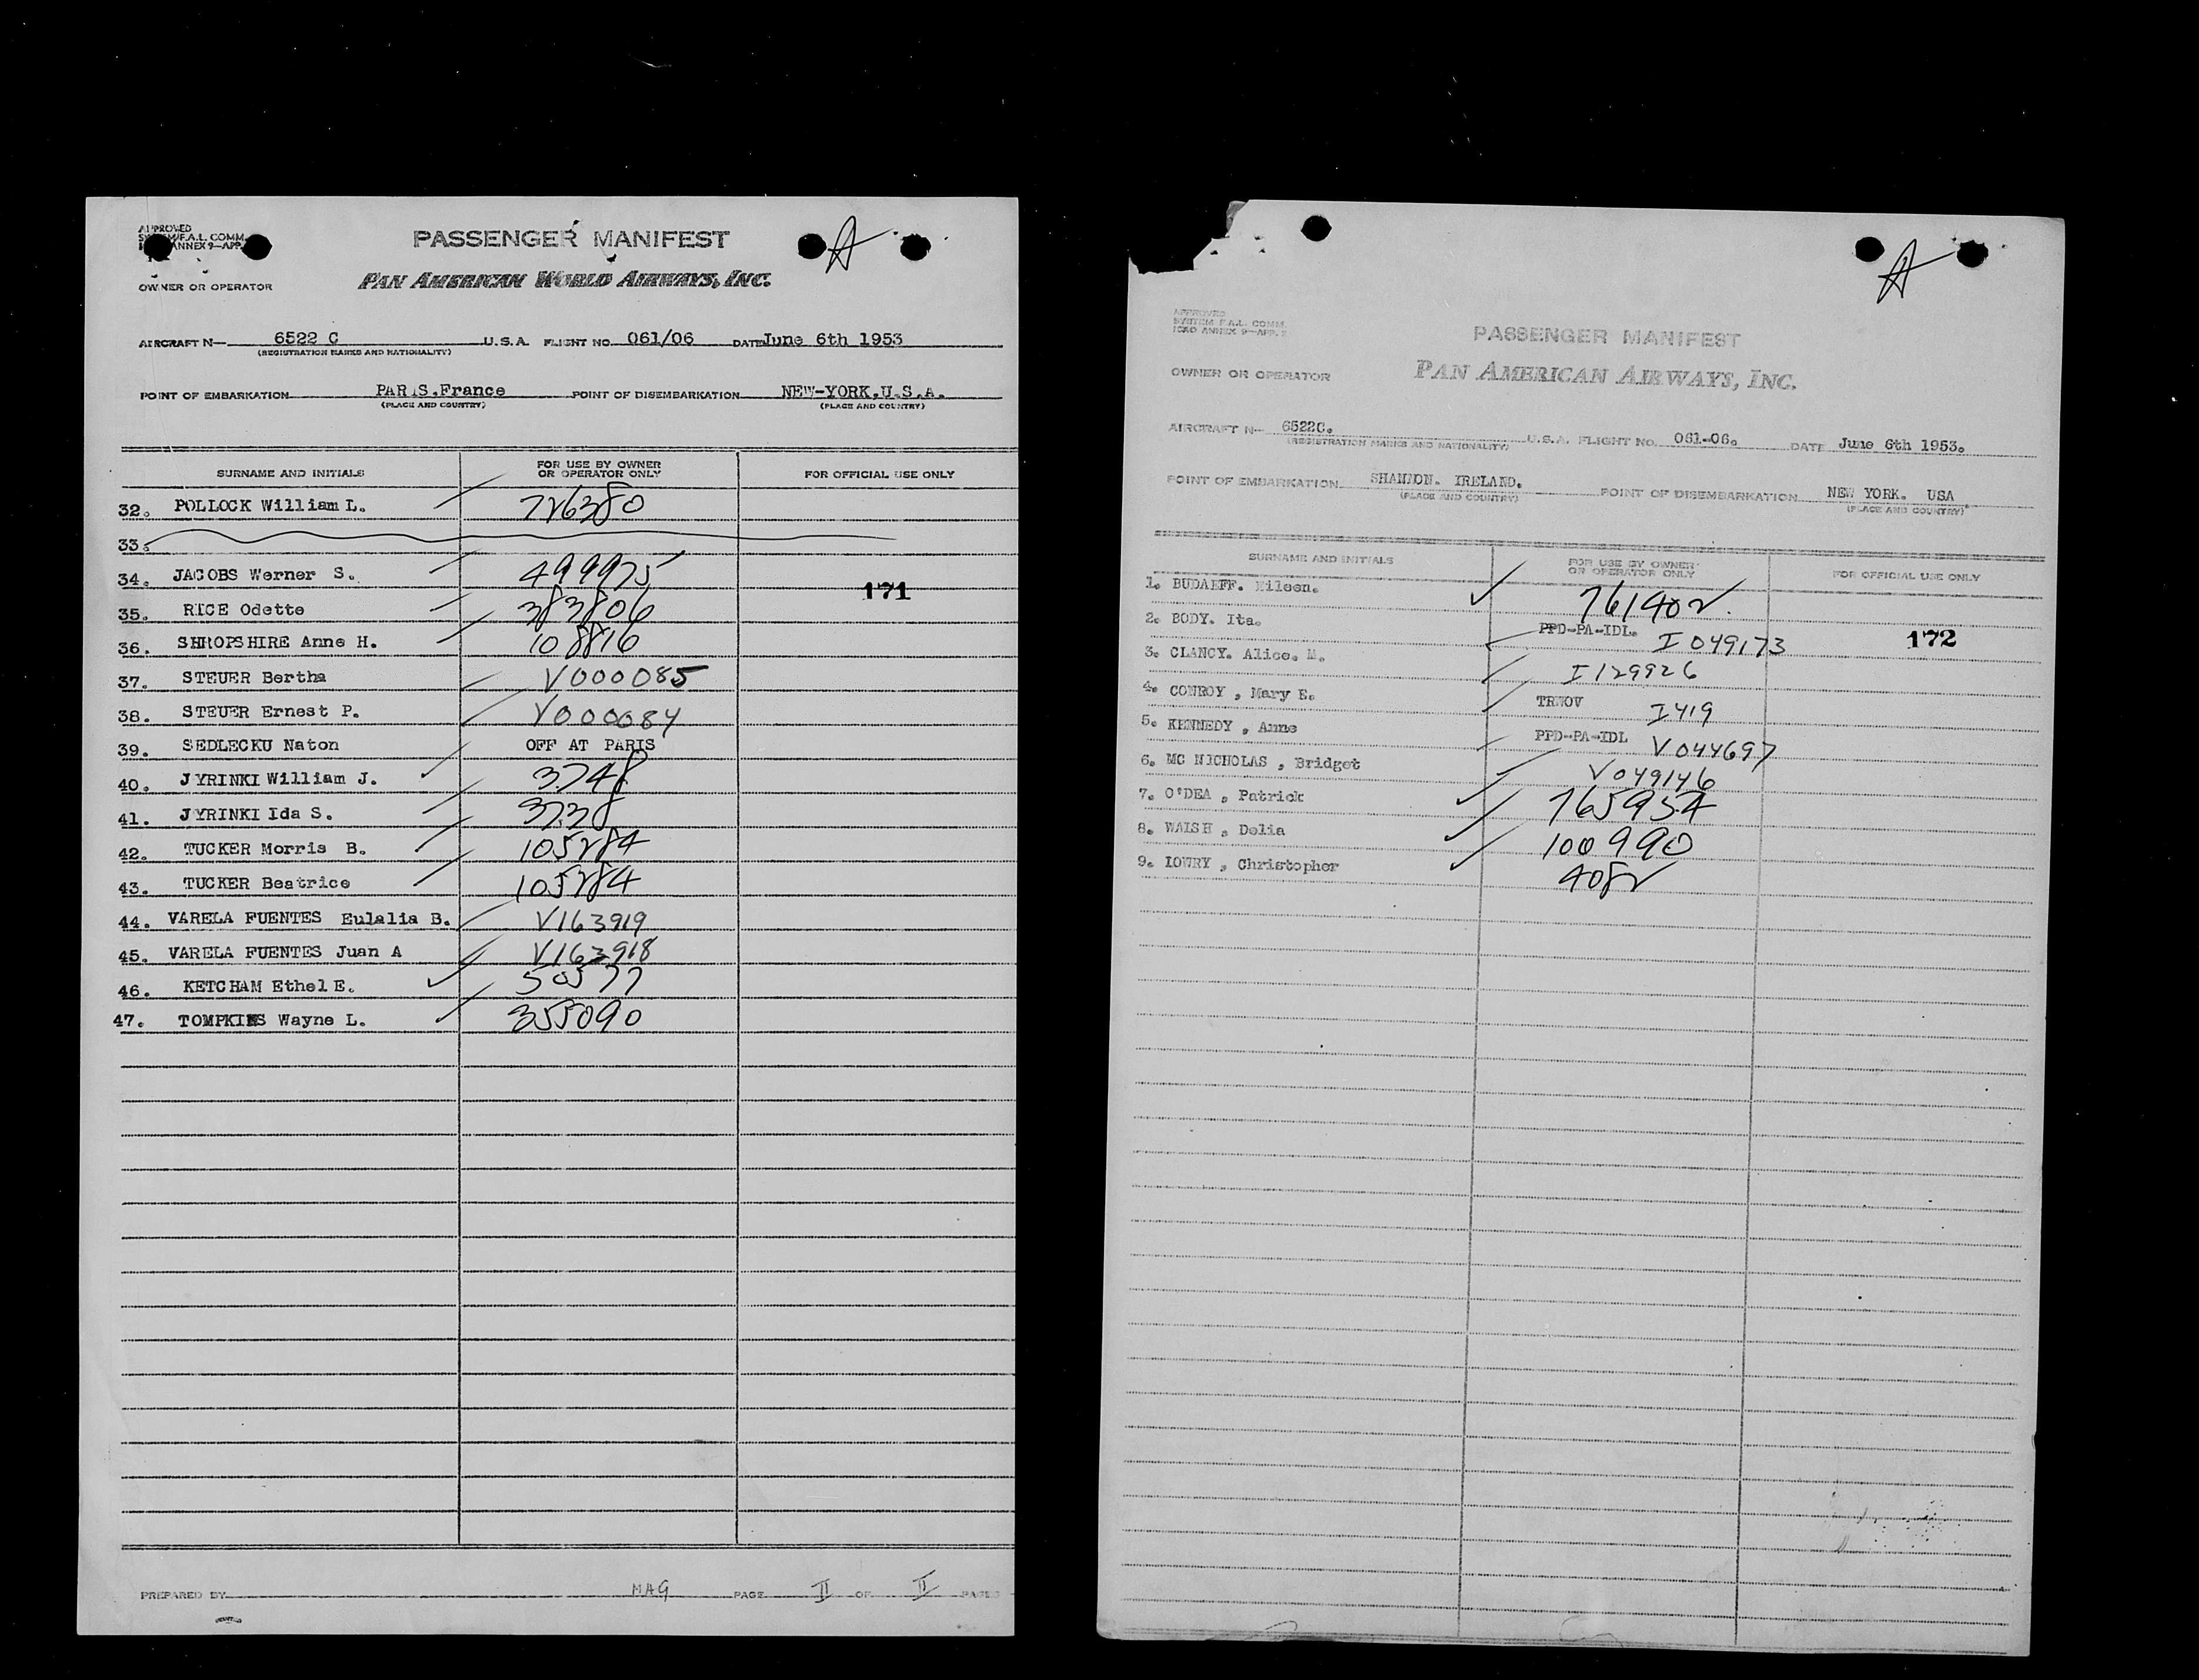 APPROVED
SYSTEM F.A.L. COMM.
ANNEX 9—APP.
PASSENGER MANIFEST
A
OWNER OR OPERATOR
PAN AMERICAN WORLD AIRWAYS, INC.
AIRCRAFT N— 6522 C U.S.A. FLIGHT NO. 061/06 DATE June 6th 1953
(REGISTRATION MARKS AND NATIONALITY)
POINT OF EMBARKATION PARIS.France POINT OF DISEMBARKATION NEW-YORK.U.S.A.
(PLACE AND COUNTRY) (PLACE AND COUNTRY)
SURNAME AND INITIALS FOR USE BY OWNER OR OPERATOR ONLY FOR OFFICIAL USE ONLY
32. POLLOCK William L. 726380
33.
34. JACOBS Werner S. 499975
171
35. RICE Odette 383806
36. SHROPSHIRE Anne H. 108816
37. STEUER Bertha V000085
38. STEUER Ernest P. V000084
39. SEDLECKU Naton OFF AT PARIS
40. JYRINKI William J. 3748
41. JYRINKI Ida S. 3738
42. TUCKER Morris B. 105284
43. TUCKER Beatrice 105284
44. VARELA FUENTES Eulalia B. V163919
45. VARELA FUENTES Juan A V163918
46. KETCHAM Ethel E. 50577
47. TOMPKINS Wayne L. 355090
PREPARED BY MAG PAGE II OF II PAGES
A
APPROVED
SYSTEM F.A.L. COMM.
ICAO ANNEX 9—APP. 2
PASSENGER MANIFEST
OWNER OR OPERATOR
PAN AMERICAN AIRWAYS, INC.
AIRCRAFT N— 6522C. U.S.A. FLIGHT NO. 061-06. DATE June 6th 1953.
(REGISTRATION MARKS AND NATIONALITY)
POINT OF EMBARKATION SHANNON. IRELAND. POINT OF DISEMBARKATION NEW YORK. USA
(PLACE AND COUNTRY) (PLACE AND COUNTRY)
SURNAME AND INITIALS FOR USE BY OWNER OR OPERATOR ONLY FOR OFFICIAL USE ONLY
1. Eileen. 761902
2. BODY. Ita. PPD-PA-IDL. I049173
172
3. CLANCY. Alice. M. I129926
4. CONROY , Mary E. I419
5. KENNEDY , Anne PPD-PA-IDL V044697
6. MC NICHOLAS , Bridget V049146
7. O'DEA , Patrick 765954
8. WALSH , Delia 100990
9. LOWRY , Christopher 4082